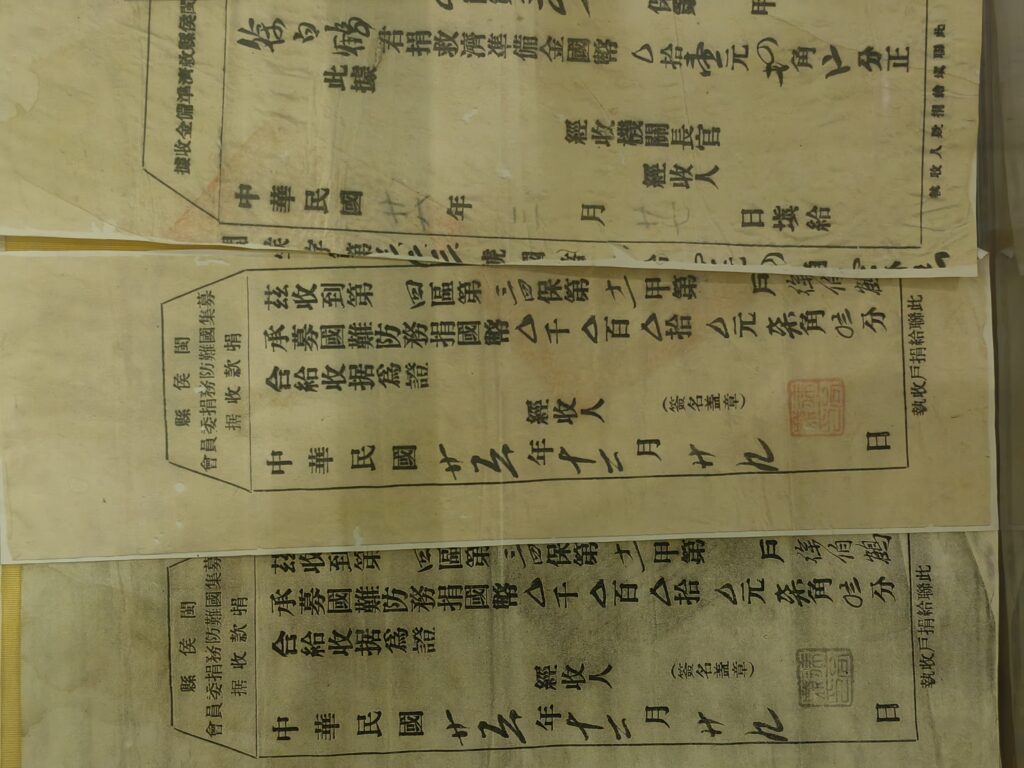 閩侯縣救濟準備金收據
徐伯鶴君捐救濟準備金國幣△拾壹元角分正
此據
經收機關長官
經收人
中華民國廿八年三月廿七日填給
此聯填給捐款人收執
閩侯縣
募集國難防務捐委員會
捐款收据
茲收到第四區第三四保第十二甲第 戶徐伯鶴
承募國難防務捐國幣△千△百△拾△元柒角0分
合給收据為證
經收人 (簽名蓋章)
中華民國廿五年十二月廿九日
此聯給捐戶收執
閩侯縣
募集國難防務捐委員會
捐款收据
茲收到第四區第三四保第十二甲第 戶徐伯鶴
承募國難防務捐國幣△千△百△拾△元柒角0分
合給收据為證
經收人 (簽名蓋章)
中華民國廿五年十二月廿九日
此聯給捐戶收執